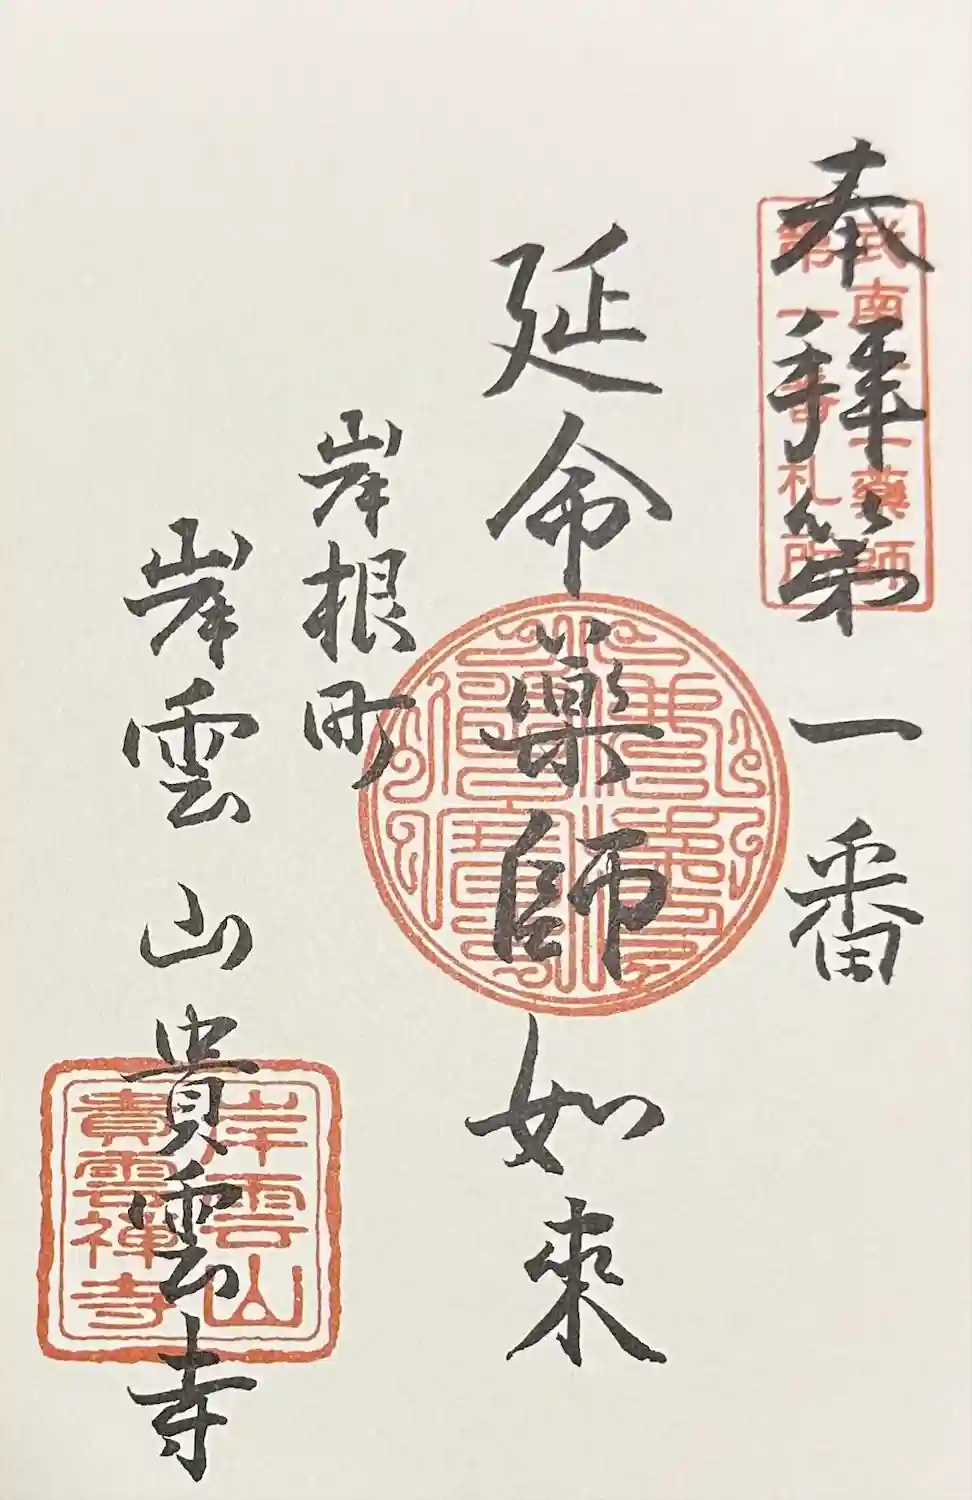 奉拜第一番
延命藥師如來
岸根町
岸雲山貴雲寺
武南十二薬師
第一番札所
岸雲山
貴雲禅寺